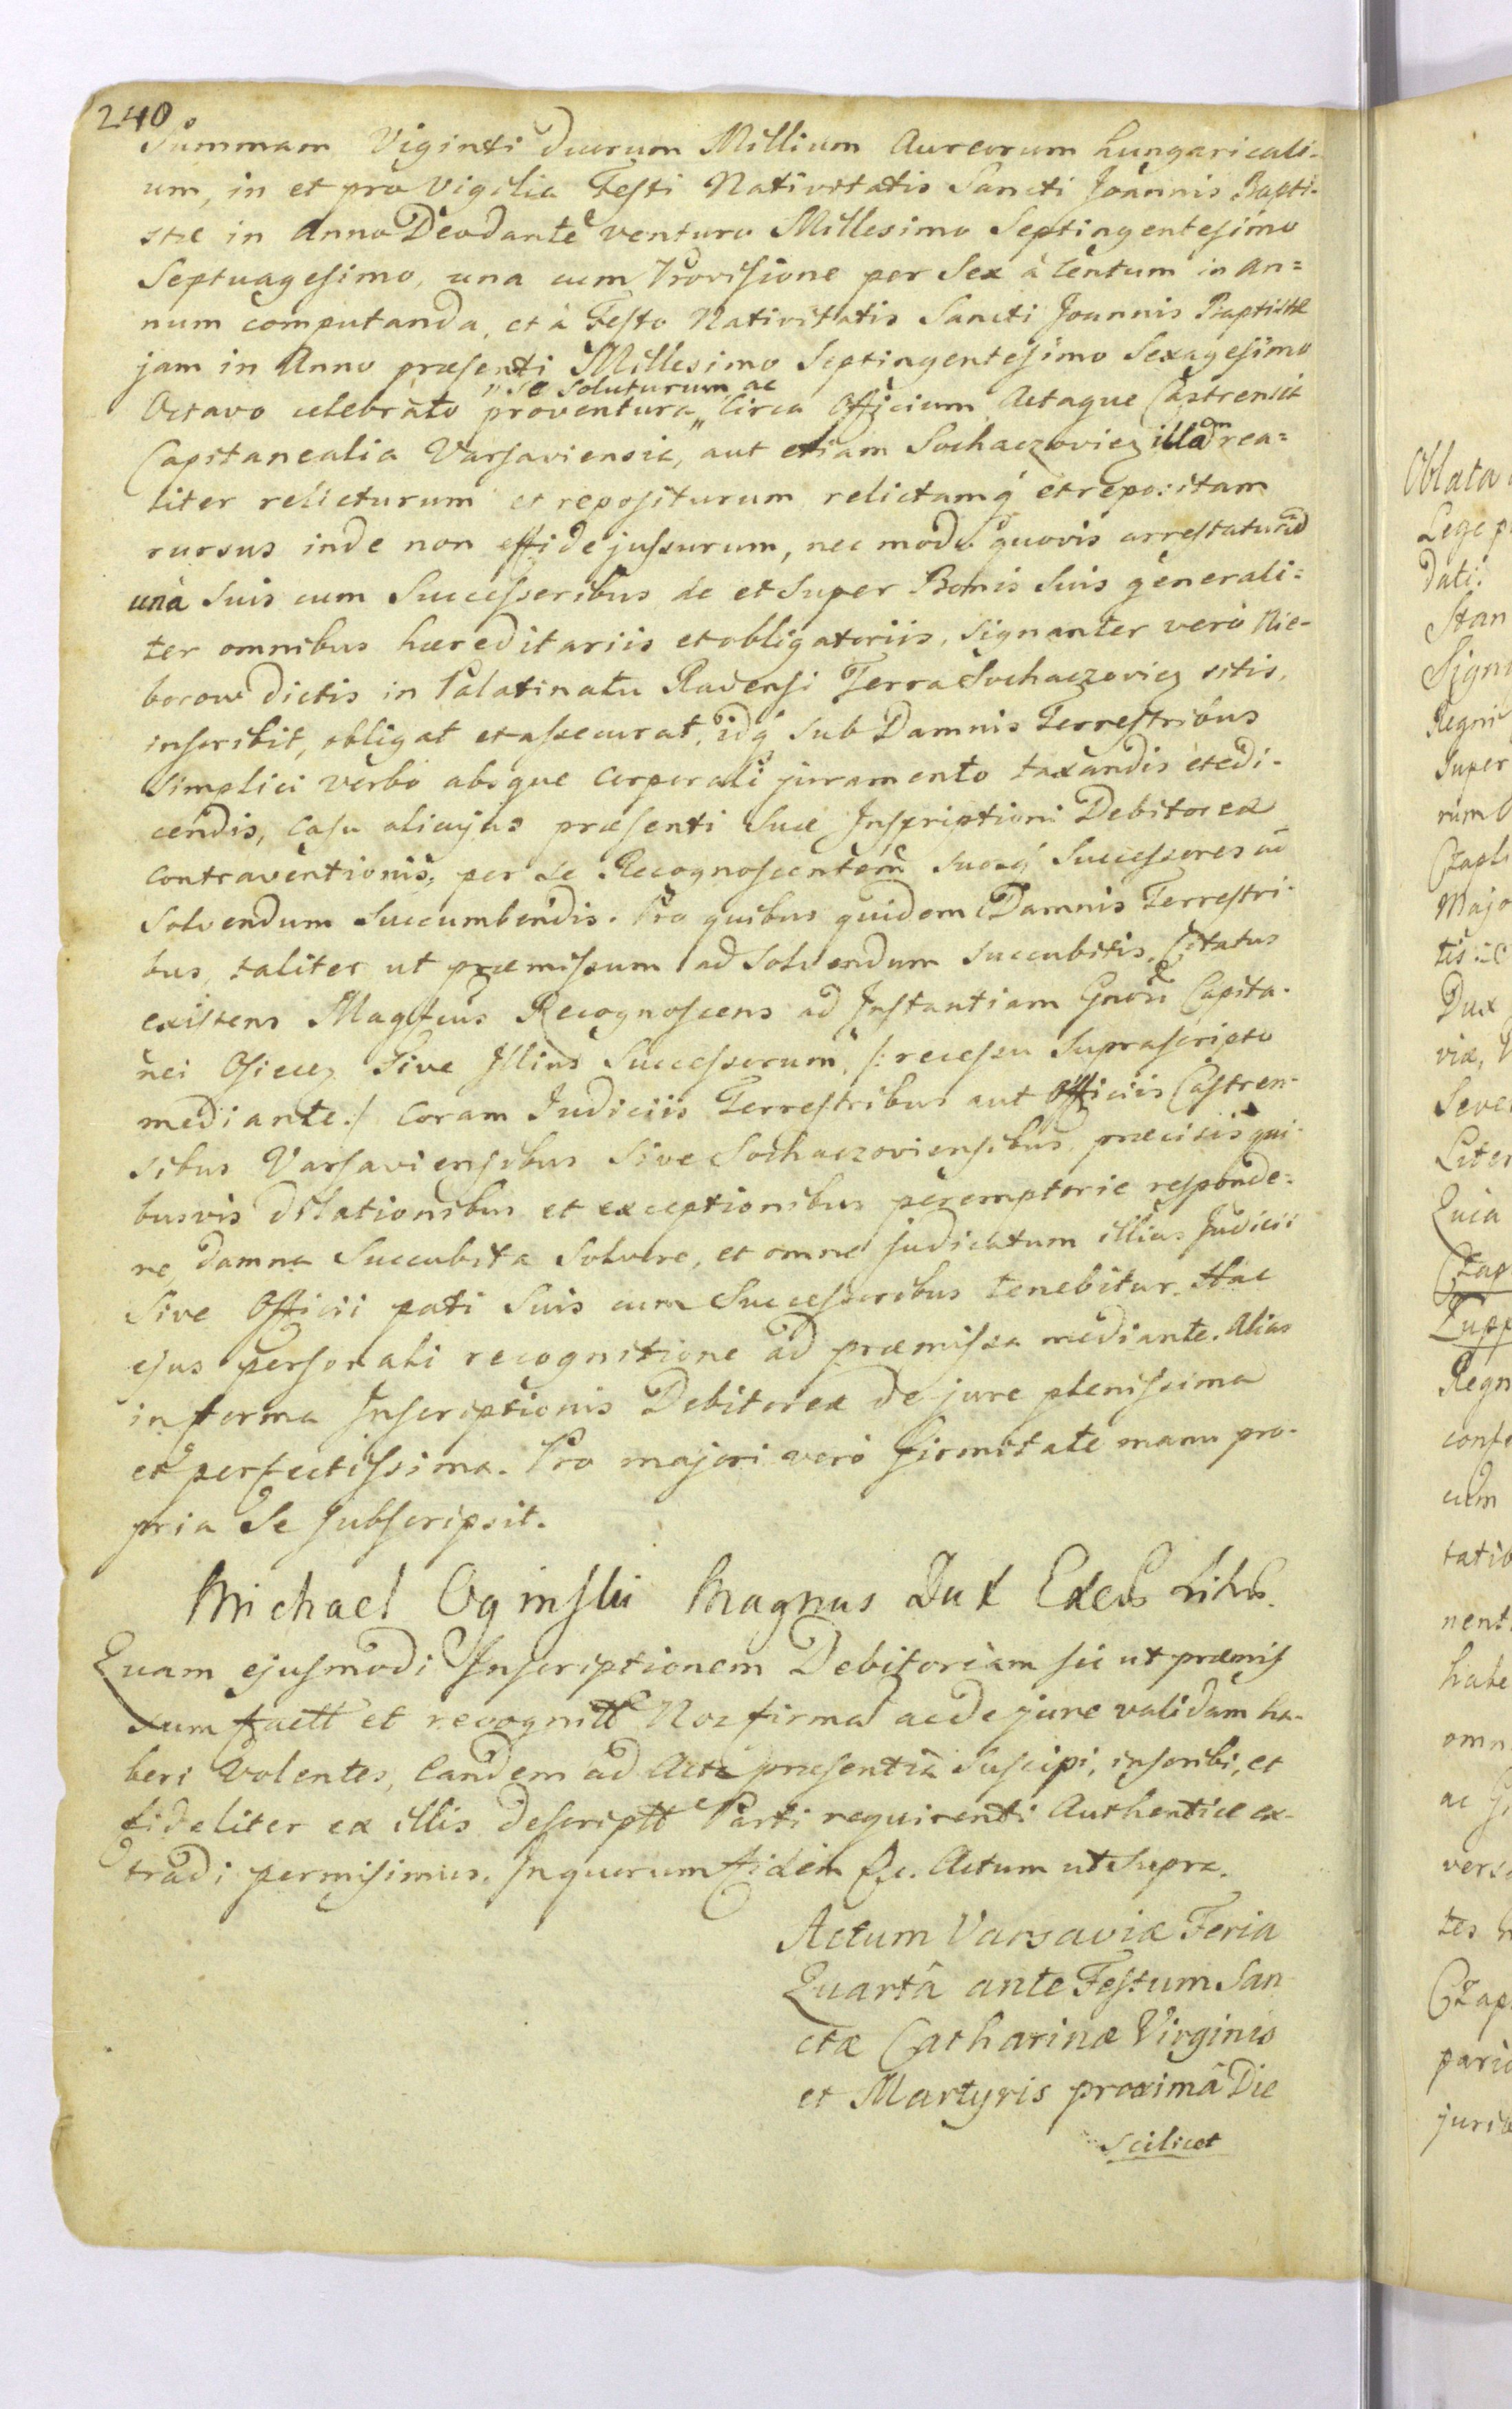 240
Summam Viginti duorum Millium Aureorum hungaricali-
um, in et pro Vigilia Festi Nativitatis Sancti Joannis Bapti-
stæ in Anno Deodante venturo Millesimo Septingentesimo
Septuagesimo, una cum Provisione per Sex à Centum in an=
num computanda, et à Festo Nativitatis Sancti Joannis Baptistæ
jam in Anno præsenti Millesimo Septingentesimo Sexagesimo
"se soluturum ac
Octavo celebrato proventura „ Circa Officium Actaque Castrensia
Capitanealia Varsaviensia, aut etiam Sochaczoviez illam rea=
liter relicturum et repositurum relictamq́ et repositam
rursus inde non effidejussurum, nec modo quovis arrestaturum
unà Suis cum Successoribus de et Super Bonis Suis generali=
ter omnibus hæreditariis et obligatoriis, Signanter verò Nie-
borow dictis in Palatinatu Ravensi Terra Sochaczoviez sitis,
inscribit, obligat et assecurat, idq́ Sub Damnis Terrestribus
Simplici verbo absque Corporali juramento taxandis et edi-
cendis, Casu alicujus præsenti Suæ Inscriptioni Debitoreæ
Contraventionis, per Se Recognoscentem Suosq́ Successores ad
Solvendum Succumbendis. Pro quibus quidem Damnis Terrestri-
bus, taliter ut præmissum ad Solvendum Succubitis, Citatus
existens Magficus Recognoscens ad Instantiam Gnosi Capita-
nei Osiecz Sive Illius Successorum, /: recessu Suprascripto
mediante :/ Coram Judiciis Terrestribus aut Officiis Castren-
sibus Varsaviensibus Sive Sochaczoviensibus, præcisis qui-
busvis dilationibus et exceptionibus peremptorie responde=
re, damna Succubita Solvere, et omne judicatum illius Judicii
Sive Officii pati Suis cum Successoribus tenebitur. Hac
ejus personali recognitione ad præmissa mediante. Alias
in forma Inscriptionis Debitoreæ de jure plenissima
et perfectissima. Pro majori verò firmitate manu pro-
pria Se subscripsit.
Michael Oginski Magnus Dux
Quam ejusmodi Inscriptionem Debitoriam sic ut præmis
sum factt et recognitt Nos firma ac de jure validam ha-
beri Volentes, Eandem ad Acta præsentia Suscipi, inscribi, et
fideliter ex illis descriptt Parti requirenti Authentice ex-
tradi permisimus. In quorum fidem &c. Actum ut Supra.
Actum Varsaviæ Feria
Quartâ ante Festum San
ctæ Catharinæ Virginis
et Martyris proximâ Die
Scilicet
Oblata
Lege p
dati
Stan
Sign
Regni
Super
rum
Czapl
Majo
tis
Dux
viæ,
Seve
Liter
Quia
Czap
Supp
Regn
confe
cum
tatio
nent
habe
omn
ac
vers
tes
Czap
pari
juri